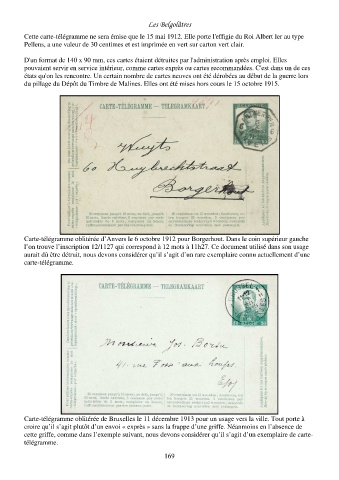 Les Belgolâtres
Cette carte-télégramme ne sera émise que le 15 mai 1912. Elle porte l'effigie du Roi Albert Ier au type
Pellens, a une valeur de 30 centimes et est imprimée en vert sur carton vert clair.
D'un format de 140 x 90 mm, ces cartes étaient détruites par l'administration après emploi. Elles
pouvaient servir en service intérieur, comme cartes exprès ou cartes recommandées. C'est dans un de ces
états qu'on les rencontre. Un certain nombre de cartes neuves ont été dérobées au début de la guerre lors
du pillage du Dépôt du Timbre de Malines. Elles ont été mises hors cours le 15 octobre 1915.
CARTE-TÉLÉGRAMME — TELEGRAMKAART
Wuyts
60 Huybrechtstraat
Borgerhout
Carte-télégramme oblitérée d'Anvers le 6 octobre 1912 pour Borgerhout. Dans le coin supérieur gauche
l'on trouve l'inscription 12/1127 qui correspond à 12 mots à 11h27. Ce document utilisé dans son usage
aurait dû être détruit, nous devons considérer qu'il s'agit d'un rare exemplaire connu actuellement d'une
carte-télégramme.
CARTE-TÉLÉGRAMME — TELEGRAMKAART
Monsieur Jos.
41. rue Fossé-aux-loups
E/V
Carte-télégramme oblitérée de Bruxelles le 11 décembre 1913 pour un usage vers la ville. Tout porte à
croire qu'il s'agit plutôt d'un envoi « exprès » sans la frappe d'une griffe. Néanmoins en l'absence de
cette griffe, comme dans l'exemple suivant, nous devons considérer qu'il s'agit d'un exemplaire de carte-
télégramme.
169